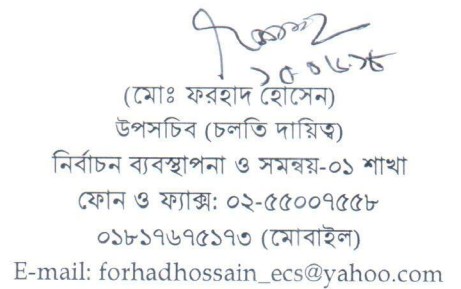 (মোঃ ফরহাদ হোসেন)
উপসচিব (চলতি দায়িত্ব)
নির্বাচন ব্যবস্থাপনা ও সমন্বয়-০১ শাখা
ফোন ও ফ্যাক্স: ০২-৫৫০০৭৫৫৮
০১৮১৭৬৭৫১৭৩ (মোবাইল)
E-mail: forhadhossain_ecs@yahoo.com